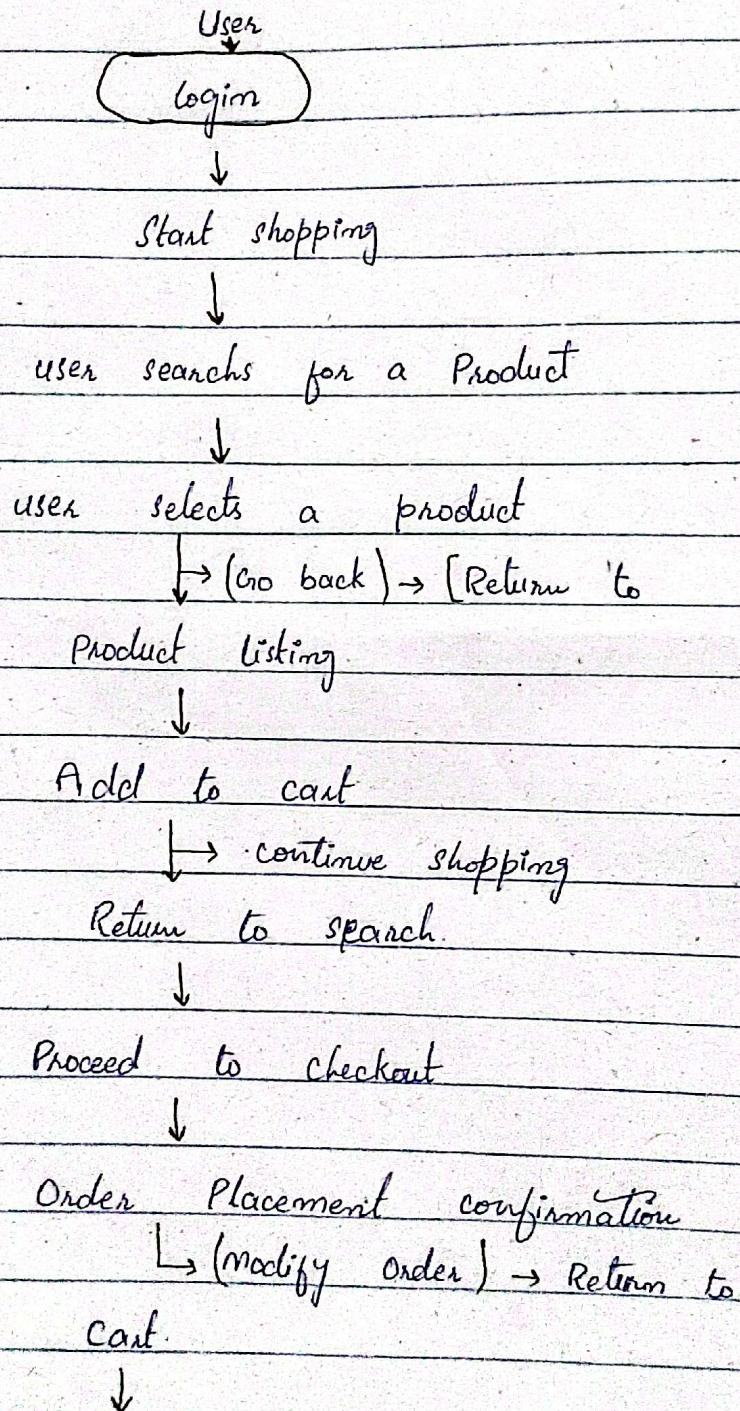 User
login
Start shopping
user searchs for a Product
user selects a product
→ (Go back) → [Return to
Product listing.
Add to cart
→ continue shopping
Return to search.
Proceed to checkout
Order Placement confirmation
→ (modify order) → Return to
cart.